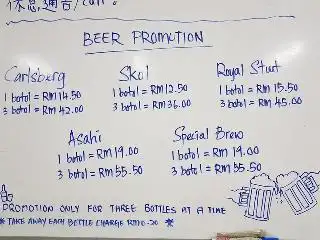 休息通告/call!
BEER PROMOTION
Carlsberg
1 botol = RM 14.50
3 botol = RM 42.00
Skol
1 botol = RM 12.50
3 botol = RM 36.00
Royal Stout
1 botol = RM 15.50
3 botol = RM 45.00
Asahi
1 botol = RM 19.00
3 botol = RM 55.50
Special Brew
1 botol = RM 19.00
3 botol = RM 55.50
PROMOTION ONLY FOR THREE BOTTLES AT A TIME
* TAKE AWAY EACH BOTTLE CHARGE RM 0.20 *